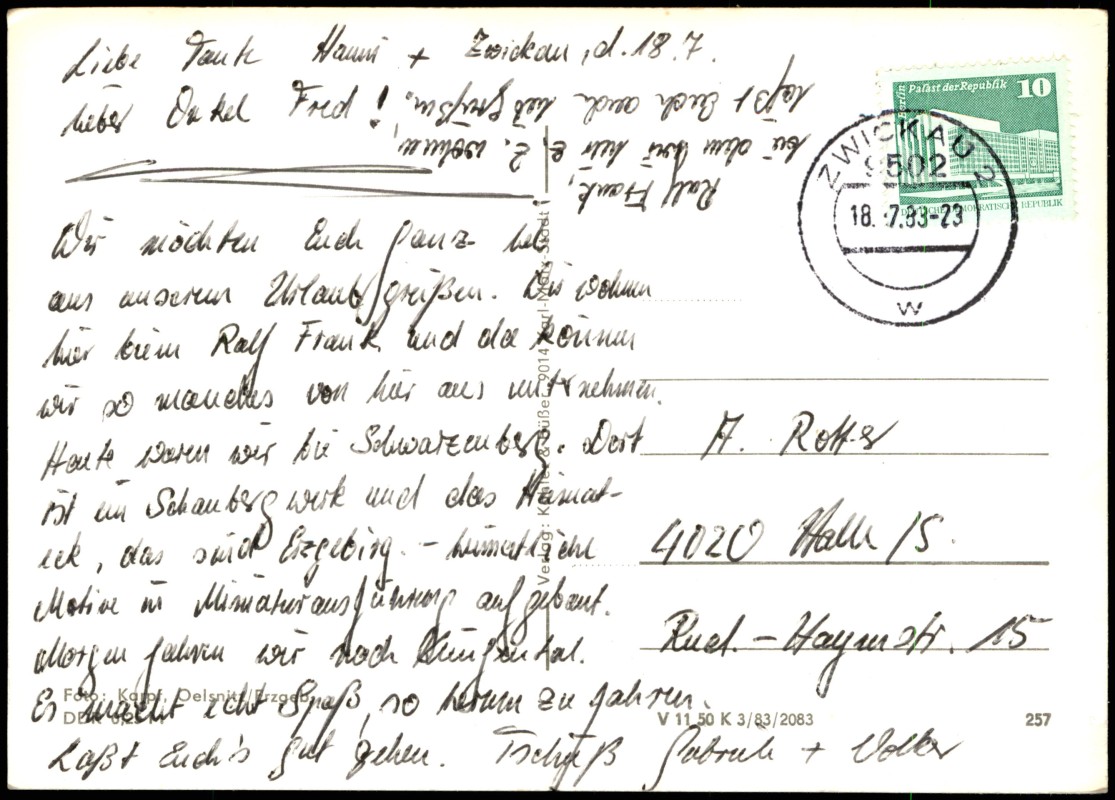 Liebe Tante Hanni + Zwickau, d. 18.7.
lieber Onkel Fred!
Wir möchten Euch ganz lieb
aus unserem Urlaub grüßen. Wir wohnen
hier beim Ralf Frank und da können
wir so manches von hier aus unternehmen.
Heute waren wir bei Schwarzenberg. Dort
ist ein Schaubergwerk und das Heimat-
eck, das sind Erzgebirg. - heimatliche
Motive in Miniaturausführung aufgebaut.
Morgen fahren wir nach Klingental.
Es macht echt Spaß, so herum zu fahren.
Laßt Euch's gut gehen. Tschüß Gabriele + Volker
Ralf Frank,
bei dem wir hier z. Z. wohnen,
läßt Euch auch lieb grüßen.
Berlin Palast der Republik 10
DEUTSCHE DEMOKRATISCHE REPUBLIK
ZWICKAU 2
9502
18.-7.83-23
w
A. Rotter
4020 Halle/S.
Rud.-Haym str. 15
Foto: Karpf, Oelsnitz/Erzgeb.
V 11 50 K 3/83/2083
257